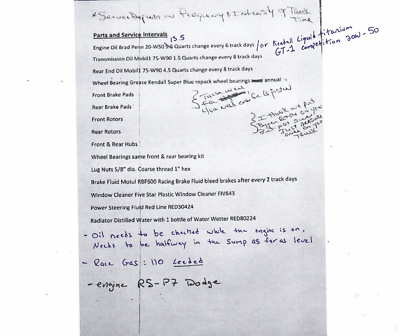 * Service Depends on Frequency & Intensity of Track Time
Parts and Service Intervals
13.5
Engine Oil Brad Penn 20-W50 Quarts change every 6 track days / or Kendall Liquid titanium
GT-1 competition 20W-50
Transmission Oil Mobil1 75-W90 1.5 Quarts change every 8 track days
Rear End Oil Mobil1 75-W90 4.5 Quarts change every 8 track days
Wheel Bearing Grease Kendall Super Blue repack wheel bearings annual
Front Brake Pads
Rear Brake Pads
Front Rotors
Rear Rotors
Front & Rear Hubs
Wheel Bearings same front & rear bearing kit
Lug Nuts 5/8" dia. Coarse thread 1" hex
Brake Fluid Motul RBF600 Racing Brake Fluid bleed brakes after every 2 track days
Window Cleaner Five Star Plastic Window Cleaner FIV843
Power Steering Fluid Red Line RED30424
Radiator Distilled Water with 1 bottle of Water Wetter RED80224
- Oil needs to be checked while the engine is on.
Needs to be halfway in the sump as far as level
- Race Gas: 110 Leeded
- engine RS-P7 Dodge